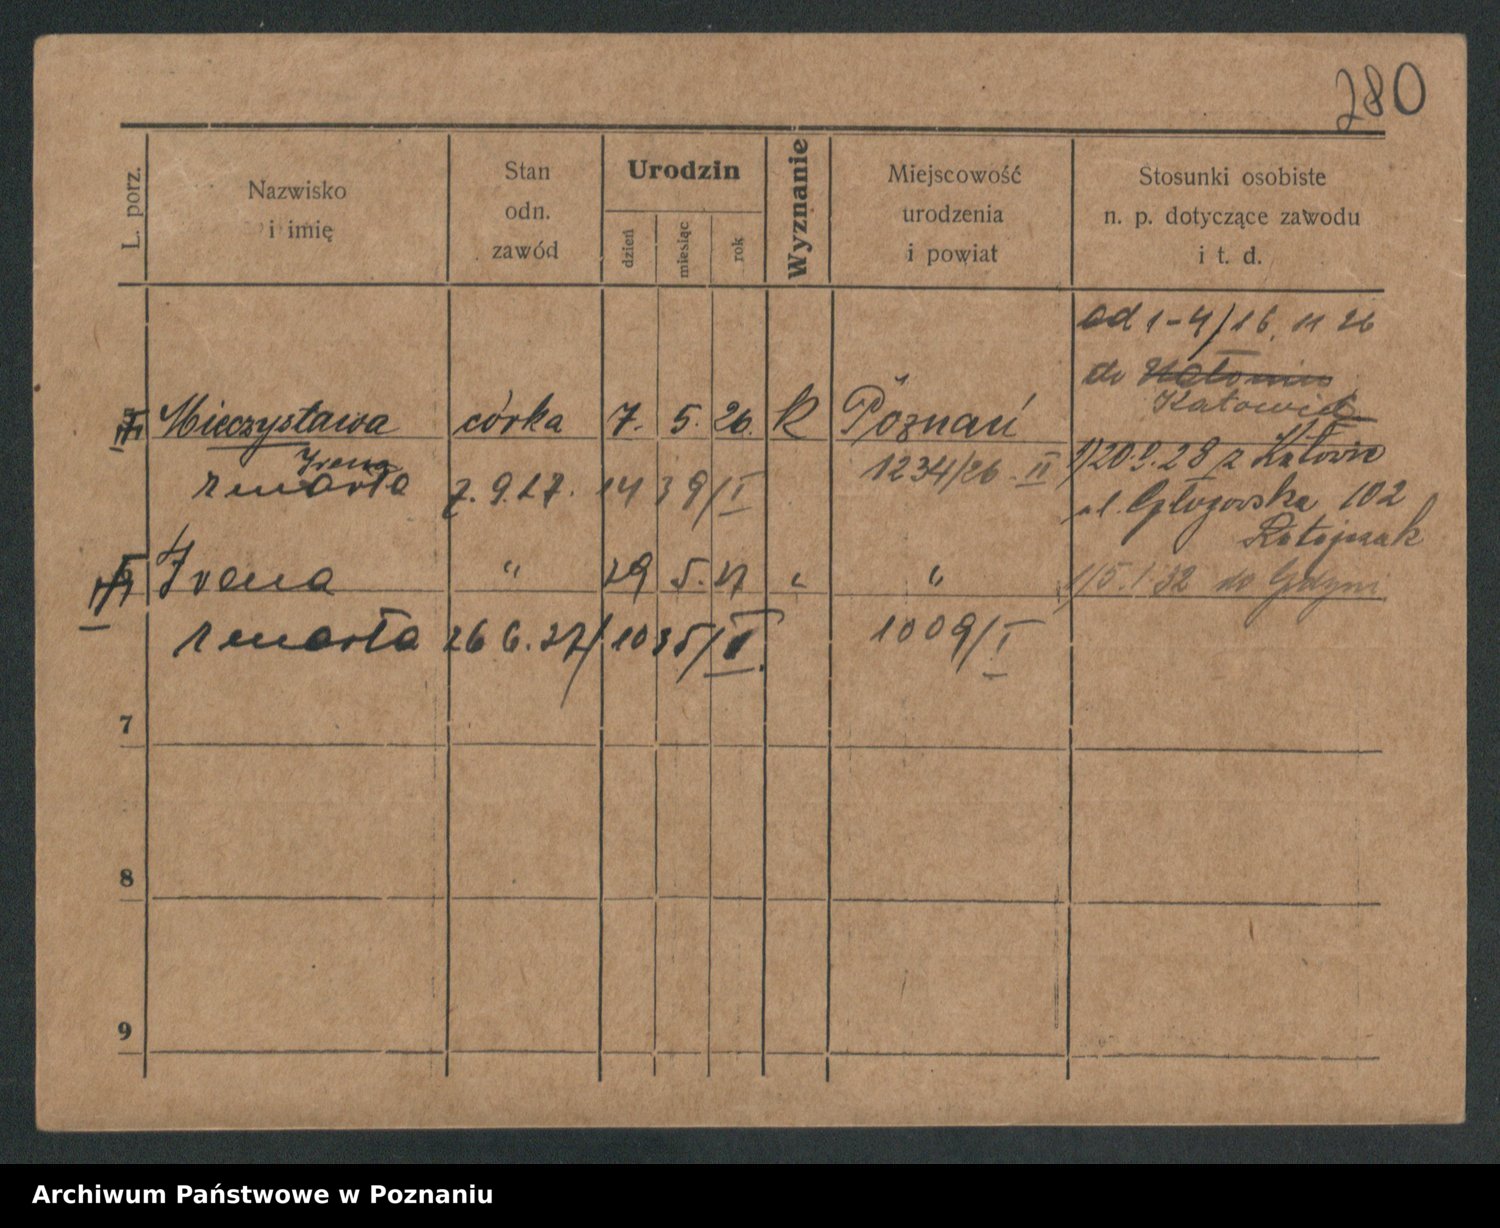 280
L. porz.
Nazwisko
i imię
Stan
odn.
zawód
Urodzin
dzień
miesiąc
rok
Wyznanie
Miejscowość
urodzenia
i powiat
Stosunki osobiste
n. p. dotyczące zawodu
i t. d.
od 1-4/16. 11 26
do
Katowic
Mieczysława córka 7. 5. 26. k Poznań
Irena
zmarła 7. 9. 27. 1439/I 1234/26 - II
1/20.9.28 z Katowic
ul. Głogowska 102
Ratajczak
Irena " 29 5. 27 " "
1/5. 1 32 do Gdyni
zmarła 26 6. 27/ 1035/II. 1009/I
7
8
9
Archiwum Państwowe w Poznaniu